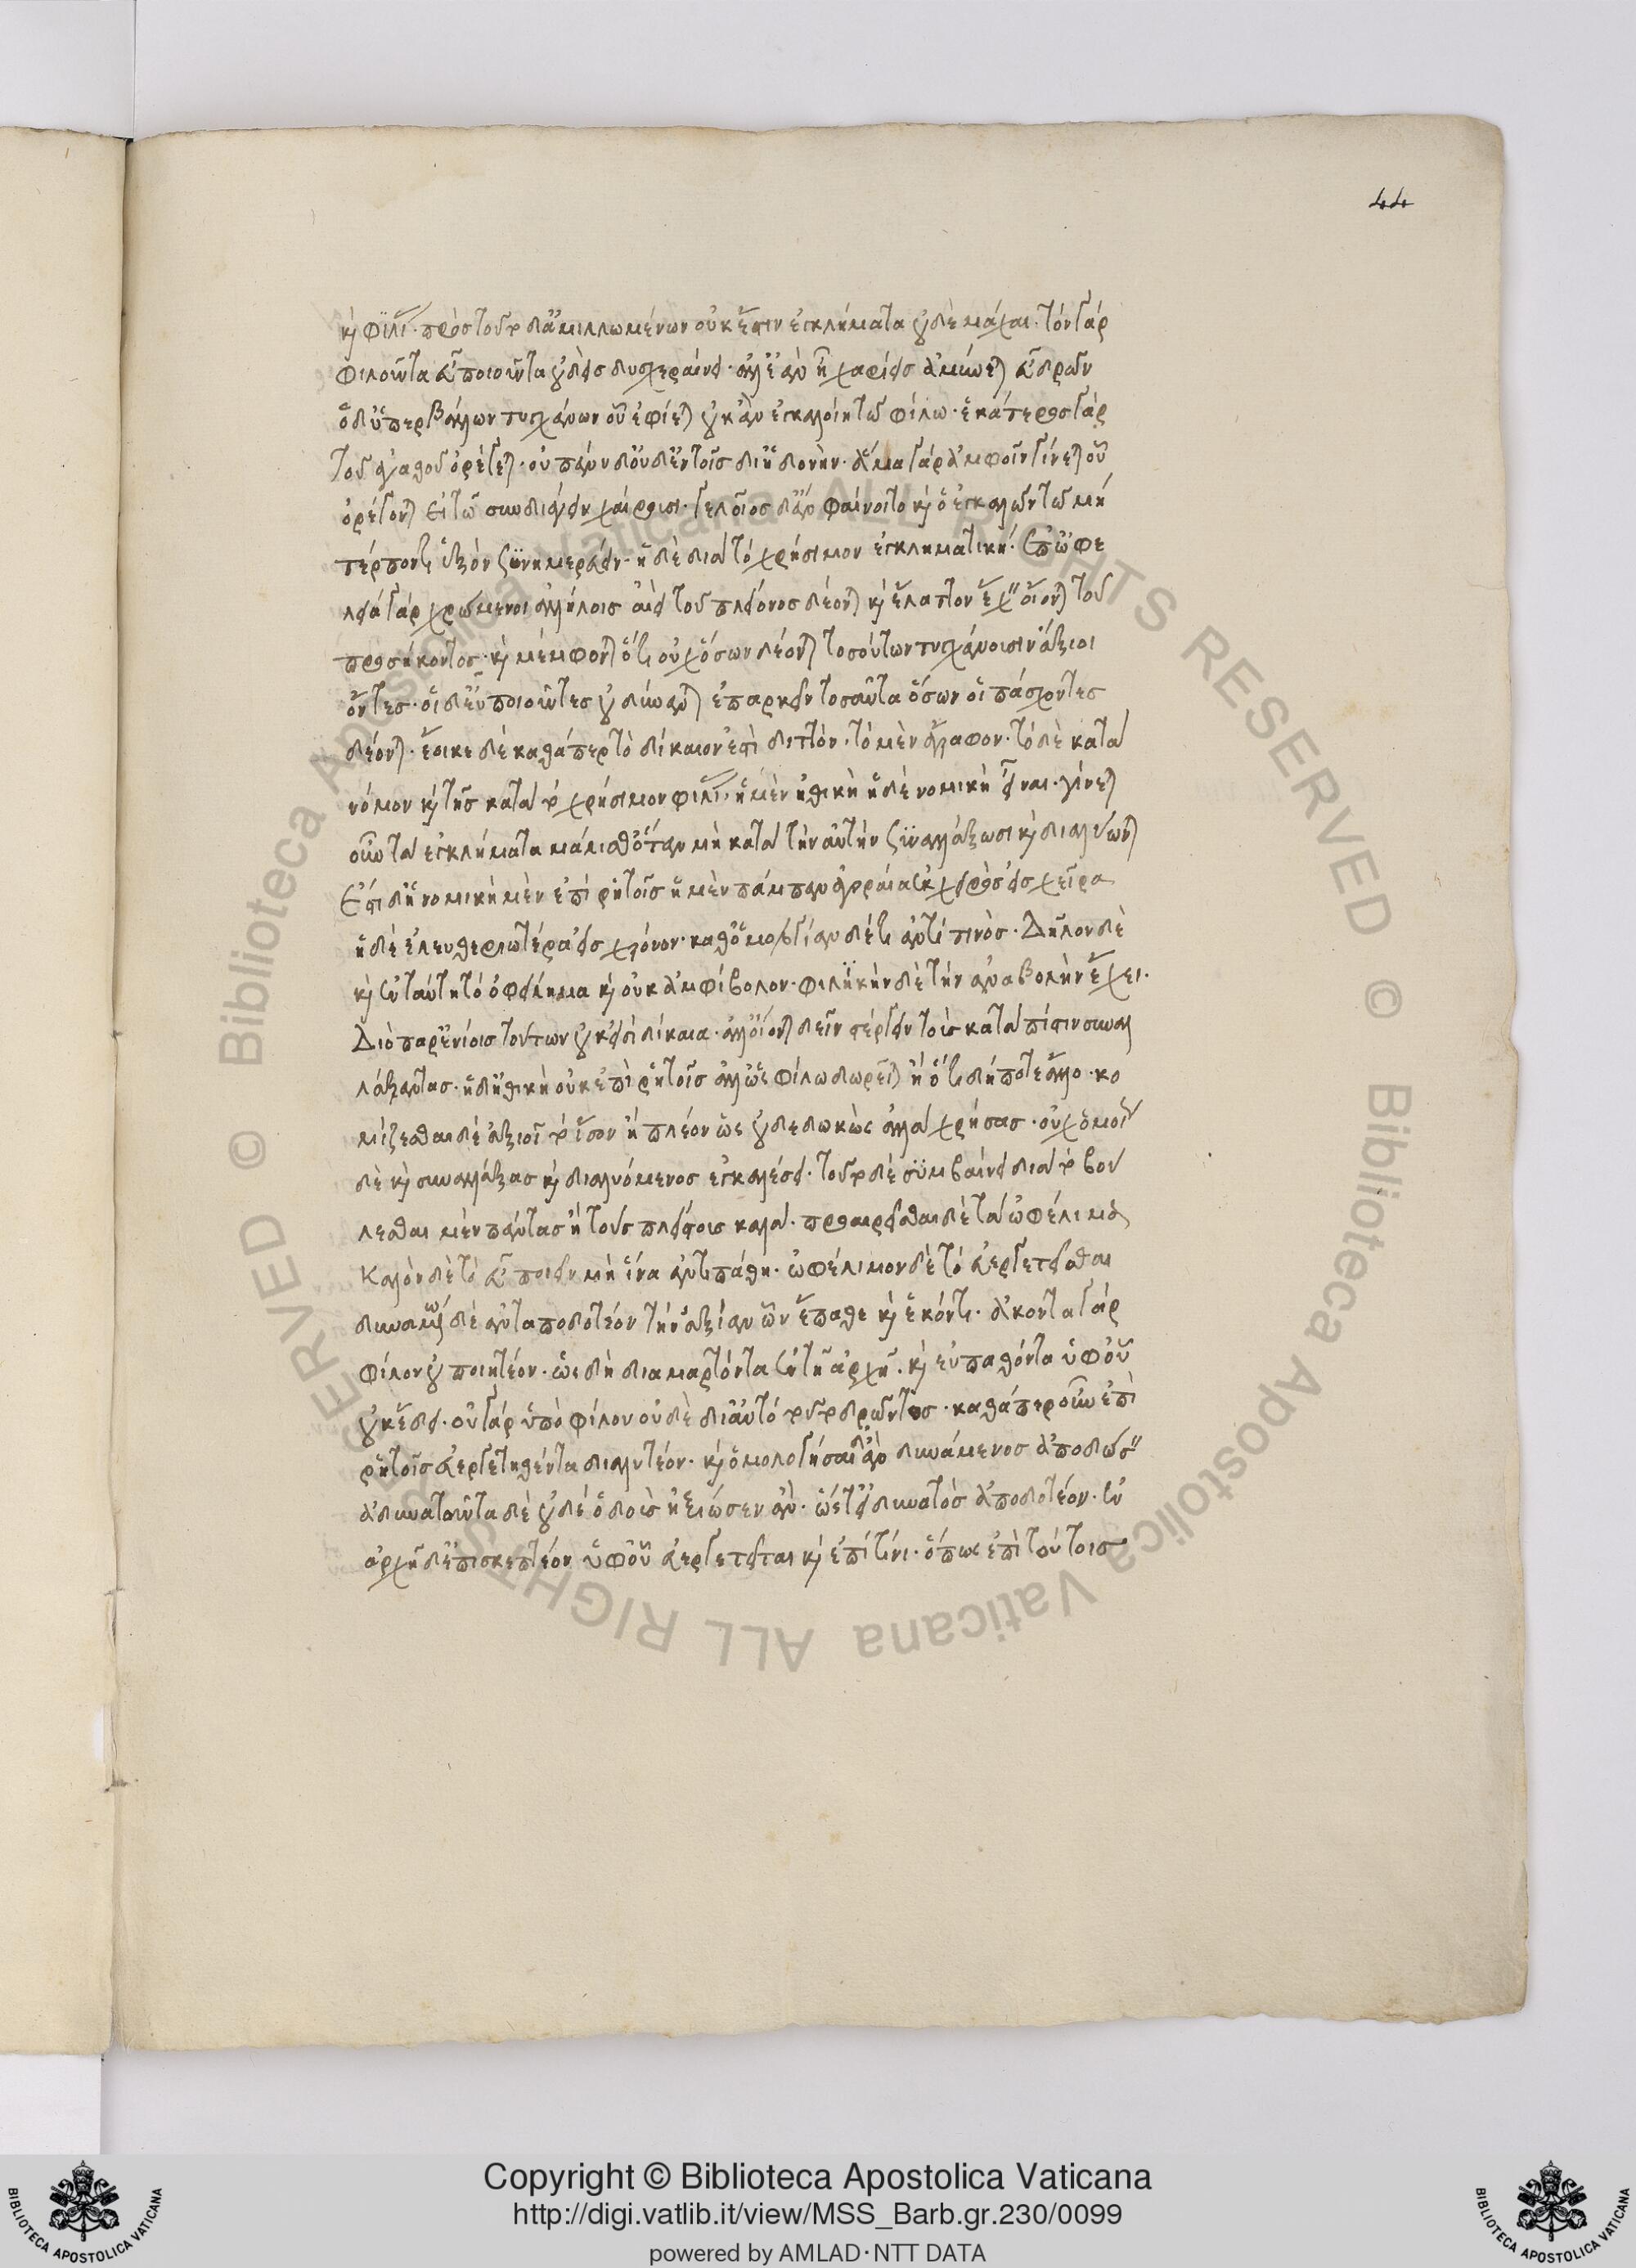 44
καὶ φιλίας· πρὸς τοῦτο δ' ἁμιλλωμένων οὐκ ἔστιν ἐγκλήματα οὐδὲ μάχαι· τὸν γὰρ
φιλοῦντα καὶ εὖ ποιοῦντα οὐδεὶς δυσχεραίνει· ἀλλ' ἐὰν ᾖ χαρίεις ἀμύνεται εὖ δρῶν
ὁ δ' ὑπερβάλλων τυγχάνων οὗ ἐφίεται οὐκ ἂν ἐγκαλοίη τῷ φίλῳ· ἑκάτερος γὰρ
τοῦ ἀγαθοῦ ὀρέγεται· οὐ πάνυ δ' οὐδ' ἐν τοῖς δι' ἡδονήν· ἅμα γὰρ ἀμφοῖν γίνεται οὗ
ὀρέγονται εἰ τῷ συνδιάγειν χαίρουσι· γελοῖος δ' ἂν φαίνοιτο καὶ ὁ ἐγκαλῶν τῷ μὴ
τέρποντι ἐξὸν συνημερεύειν· ἡ δὲ διὰ τὸ χρήσιμον ἐγκληματική· ἐπ' ὠφε
λείᾳ γὰρ χρώμενοι ἀλλήλοις ἀεὶ τοῦ πλείονος δέονται καὶ ἔλαττον ἔχειν οἴονται τοῦ
προσήκοντος· καὶ μέμφονται ὅτι οὐχ ὅσων δέονται τοσούτων τυγχάνουσιν ἄξιοι
ὄντες· οἱ δ' εὖ ποιοῦντες οὐ δύνανται ἐπαρκεῖν τοσαῦτα ὅσων οἱ πάσχοντες
δέονται· ἔοικε δὲ καθάπερ τὸ δίκαιον ἐστὶ διττόν· τὸ μὲν ἄγραφον· τὸ δὲ κατὰ
νόμον καὶ τῆς κατὰ τὸ χρήσιμον φιλίας· ἡ μὲν ἠθικὴ ἡ δὲ νομικὴ εἶναι· γίνεται
οὖν τὰ ἐγκλήματα μάλισθ' ὅταν μὴ κατὰ τὴν αὐτὴν συναλλάξωσι καὶ διαλύωνται
Ἔστι δ' ἡ νομικὴ μὲν ἐπὶ ῥητοῖς ἡ μὲν πάμπαν ἀγοραία ἐκ χειρὸς εἰς χεῖρα
ἡ δὲ ἐλευθεριωτέρα εἰς χρόνον· καθ' ὁμολογίαν δέ τι ἀντί τινός· Δῆλον δὲ
καὶ ἐν ταύτῃ τὸ ὀφείλημα καὶ οὐκ ἀμφίβολον· φιλικὴν δὲ τὴν ἀναβολὴν ἔχει·
Διὸ παρ' ἐνίοις τούτων οὐκ εἰσὶ δίκαι· ἀλλ' οἴονται δεῖν στέργειν τοὺς κατὰ πίστιν συναλ
λάξαντας· ἡ δ' ἠθικὴ οὐκ ἐπὶ ῥητοῖς ἀλλ' ὡς φίλῳ δωρεῖται ἢ ὁτιδήποτε ἄλλο· κο
μίζεσθαι δὲ ἀξιοῖ τὸ ἴσον ἢ πλέον ὡς οὐ δεδωκὼς ἀλλὰ χρήσας· οὐχ ὁμοίως
δὲ καὶ συναλλάξας καὶ διαλυόμενος ἐγκαλέσει· τοῦτο δὲ συμβαίνει διὰ τὸ βού
λεσθαι μὲν πάντας ἢ τοὺς πλείστους καλά· προαιρεῖσθαι δὲ τὰ ὠφέλιμα
καλὸν δὲ τὸ εὖ ποιεῖν μὴ ἵνα ἀντιπάθῃ· ὠφέλιμον δὲ τὸ εὐεργετεῖσθαι
δυναμένῳ δὲ ἀνταποδοτέον τὴν ἀξίαν ὧν ἔπαθε καὶ ἑκόντι· ἄκοντα γὰρ
φίλον οὐ ποιητέον· ὡς δὴ διαμαρτόντα ἐν τῇ ἀρχῇ· καὶ εὖ παθόντα ὑφ' οὗ
οὐκ ἔδει· οὐ γὰρ ὑπὸ φίλου οὐδὲ δι' αὐτὸ τοῦτο δρῶντος· καθάπερ οὖν ἐπὶ
ῥητοῖς εὐεργετηθέντα διαλυτέον· καὶ ὁμολογήσαι δ' ἂν δυνάμενος ἀποδώσειν
ἀδυνατοῦντα δὲ οὐδὲ ὁ διδοὺς ἠξίωσεν ἄν· ὥστ' εἰ δυνατὸς ἀποδοτέον· ἐν
ἀρχῇ δ' ἐπισκεπτέον ὑφ' οὗ εὐεργετεῖται καὶ ἐπὶ τίνι· ὅπως ἐπὶ τούτοις
Copyright © Biblioteca Apostolica Vaticana
http://digi.vatlib.it/view/MSS_Barb.gr.230/0099
powered by AMLAD · NTT DATA
BIBLIOTECA APOSTOLICA VATICANA
BIBLIOTECA APOSTOLICA VATICANA
© Biblioteca Apostolica Vaticana ALL RIGHTS RESERVED © Biblioteca Apostolica Vaticana ALL RIGHTS RESERVED